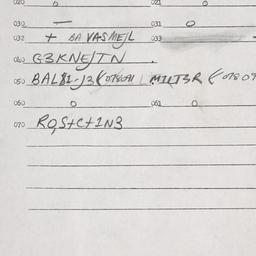 020 0 021 0
030 — 031 0
032 + BA VASMEJL 033
040 G3KNE/TN .
050 BAL81-J3( 078091 M1LT3R (07809
060 0 061 0
070 R0,S+C+1N3